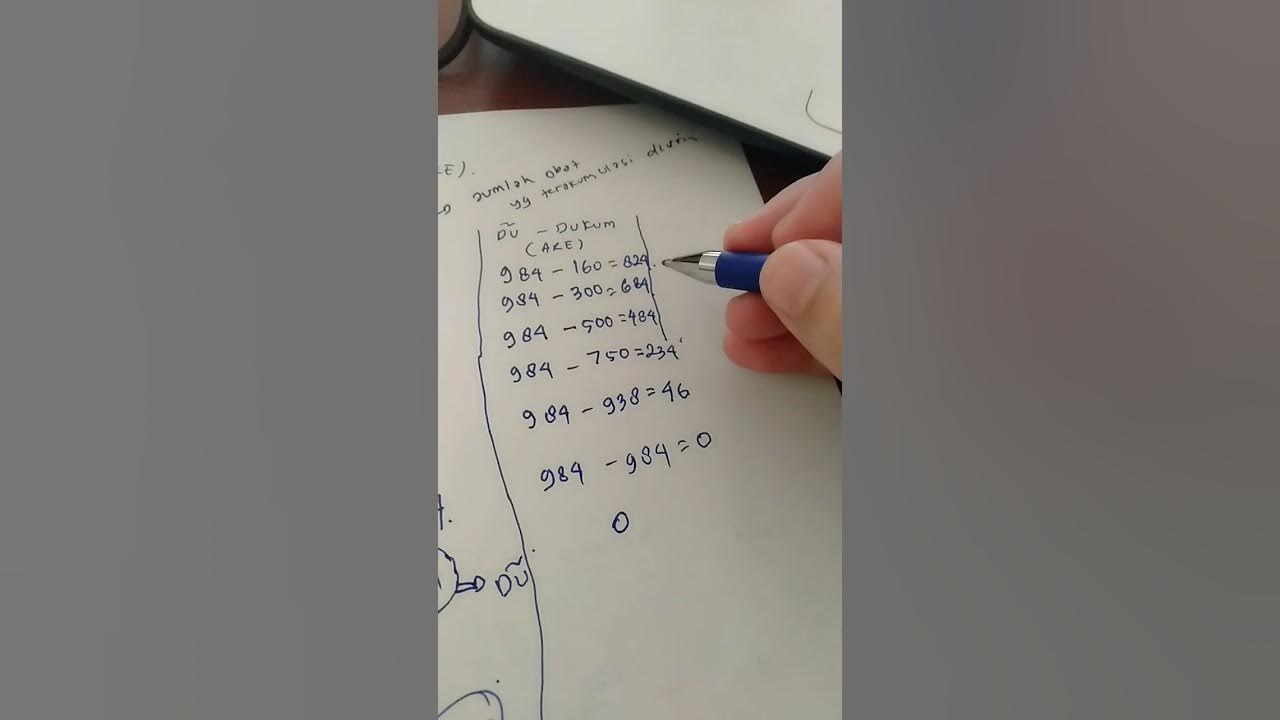 RE).
⇒ Jumlah obat
yg terakumulasi diurin
DŨ - Dukum
(ARE)
984 - 160 = 824
984 - 300 = 684
984 - 500 = 484
984 - 750 = 234
984 - 938 = 46
984 - 984 = 0
0
⇒ DŨ